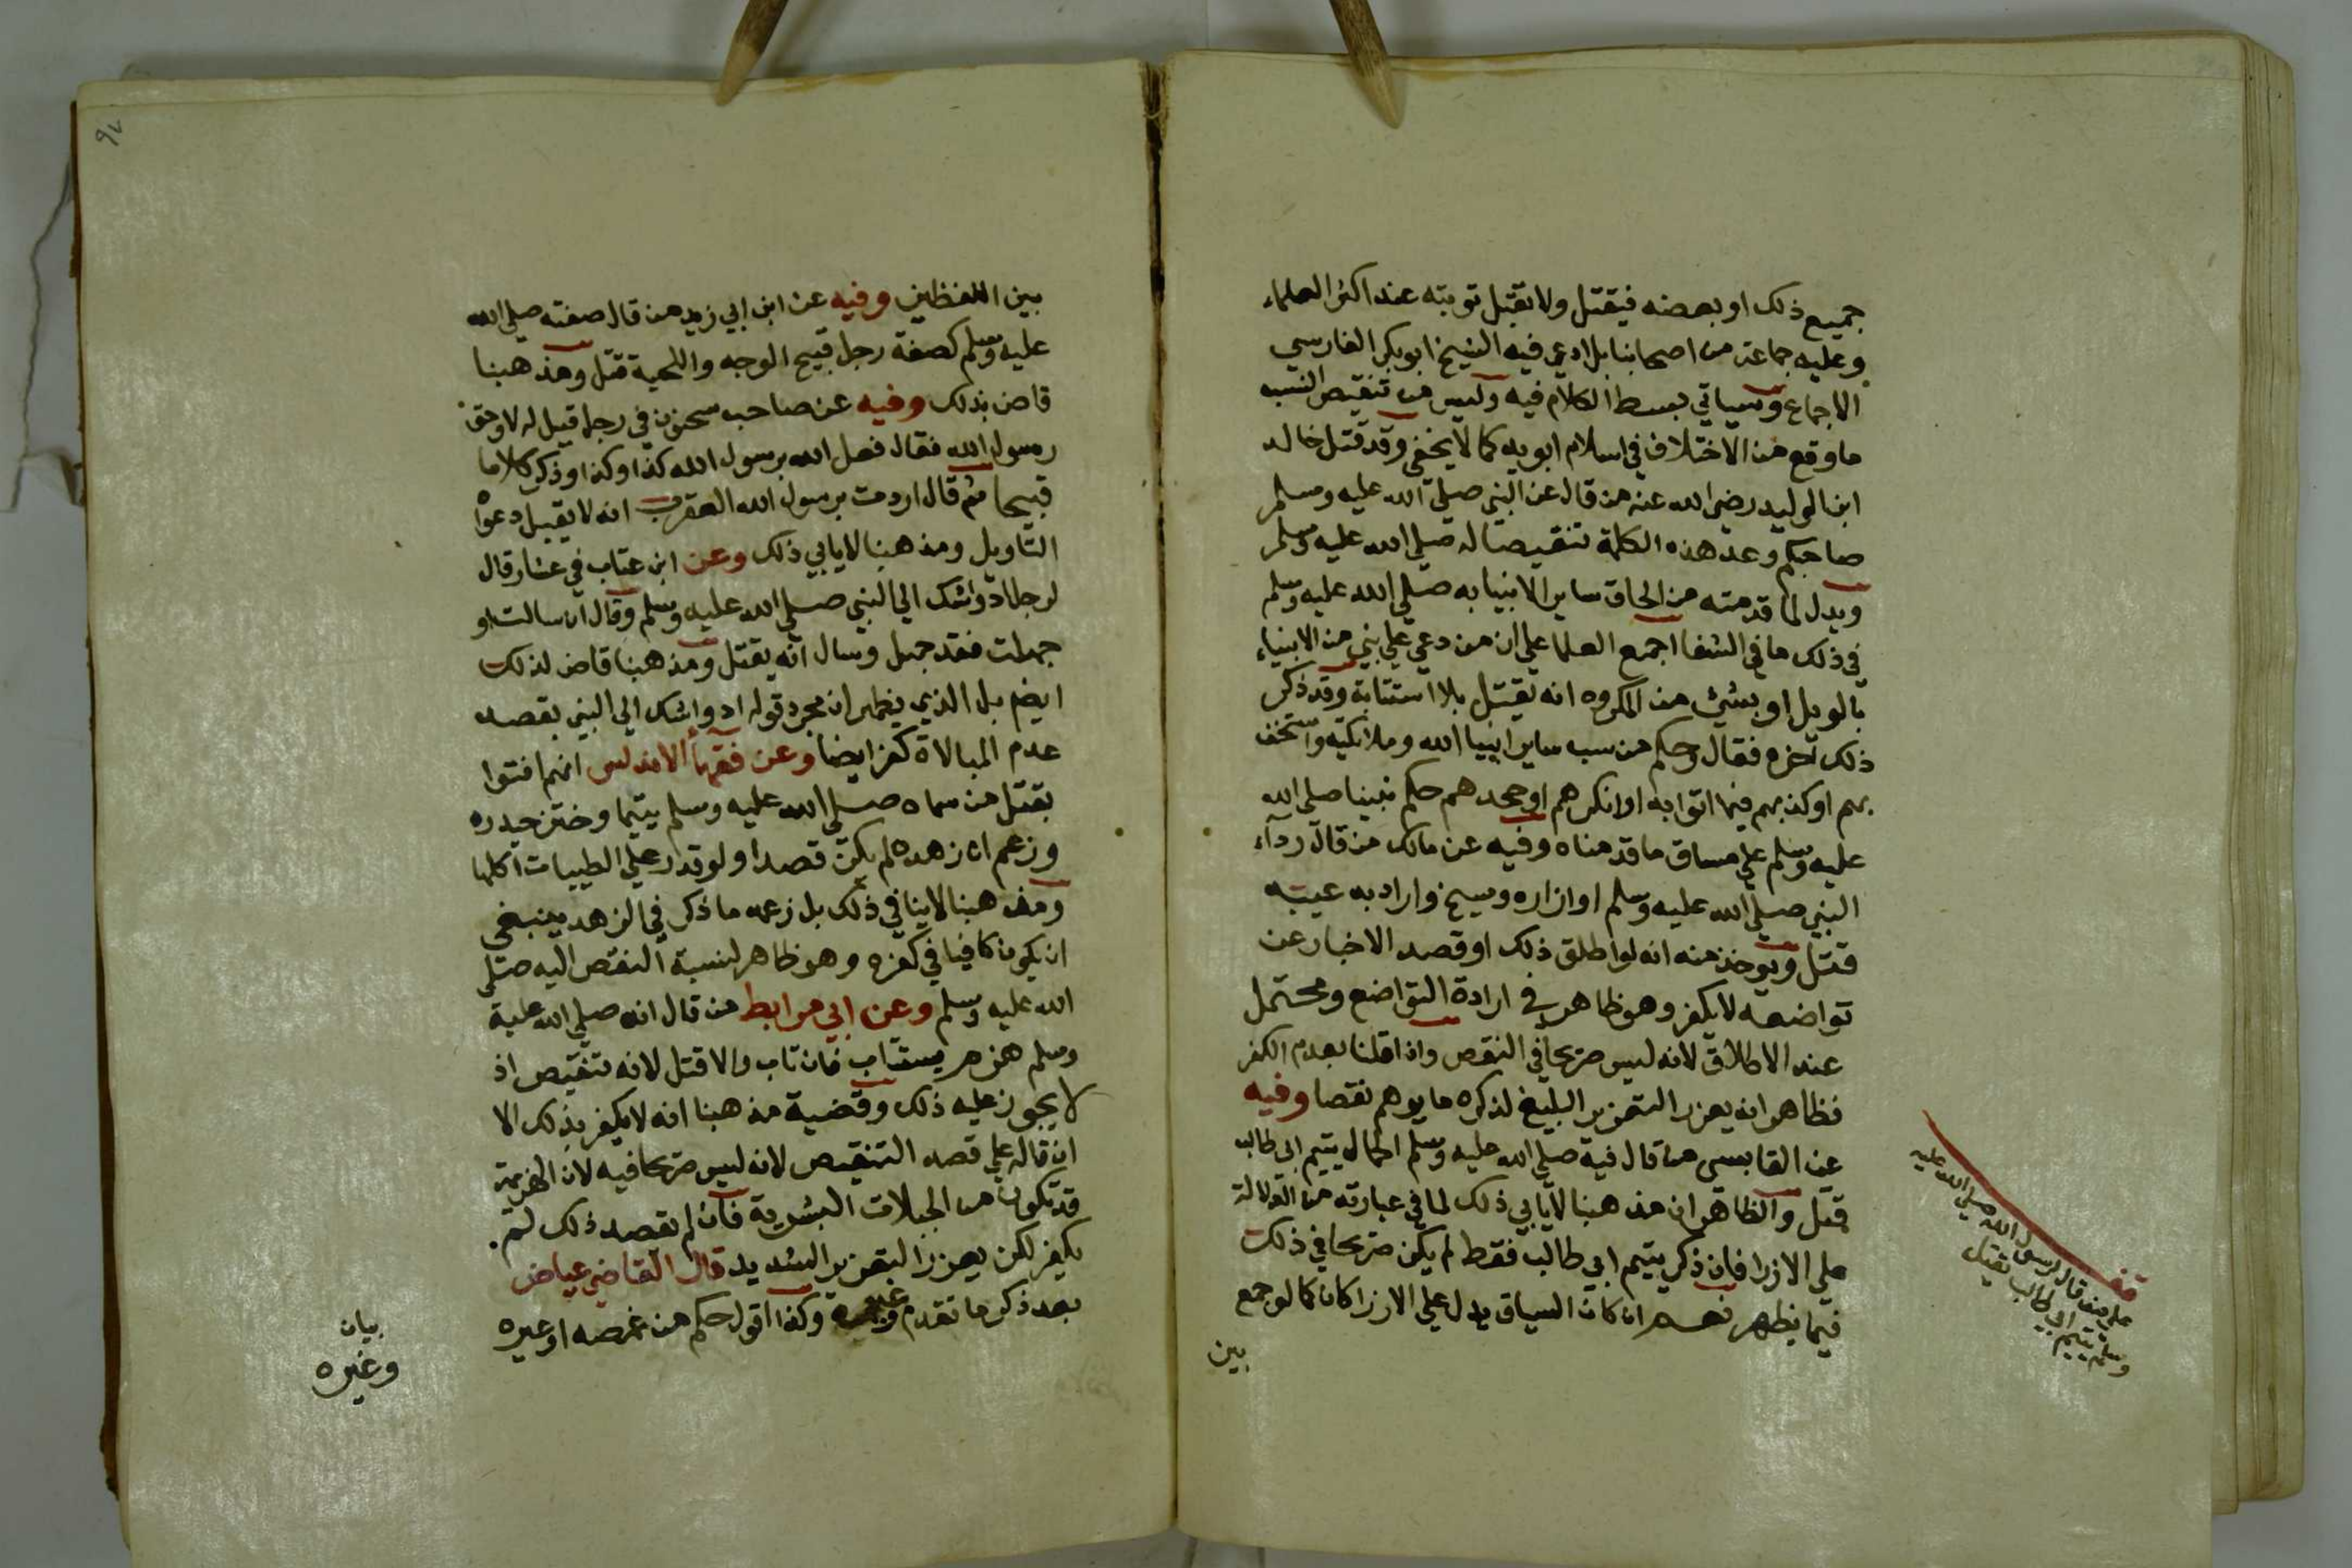 جميع ذلك او بعضه فيقتل ولا تقبل توبته عند اكثر العلماء
وعليه جماعة من اصحابنا بل ادعي فيه الشيخ ابو بكر الفارسي
الاجماع وسياتي بسط الكلام فيه وليس من تنقيص النسب
ما وقع من الاختلاف في اسلام ابويه كما لا يخفي وقد قتل خالد
ابن الوليد رضي الله عنه من قال عن النبي صلي الله عليه وسلم
صاحبكم وعد هذه الكلمة تنقيصا له صلي الله عليه وسلم
ويدل لما قدمته من الحاق ساير الانبيا به صلي الله عليه وسلم
في ذلك ما في الشفا اجمع العلما علي ان من دعي علي نبي من الانبياء
بالويل او بشئ من المكروه انه يقتل بلا استتابة وقد ذكر
ذلك آخره فقال وحكم من سب ساير انبيا الله وملائكته واستخف
بهم او كذبهم فيما اتوا به او انكرهم او جحدهم حكم نبينا صلي الله
عليه وسلم علي مساق ما قدمناه وفيه عن مالك من قال رداء
النبي صلي الله عليه وسلم او ازاره وسيخ واراد به عيبه
قتل ويوخذ منه انه لو اطلق ذلك او قصد الاخبار عن
تواضعه لا يكفر وهو ظاهر في ارادة التواضع ومحتمل
عند الاطلاق لانه ليس صريحا في النقص واذا قلنا بعدم الكفر
فظاهر انه يعزر التعزير البليغ لذكره ما يوهم نقصا وفيه
عن القابسي من قال فيه صلي الله عليه وسلم الجمال يتيم ابي طالب
قتل والظاهر ان مذهبنا لا يابي ذلك لما في عبارته من الدلالة
علي الازرا فان ذكر يتيم ابي طالب فقط لم يكن صريحا في ذلك
فيما يظهر نعم ان كان السياق يدل علي الازرا كان كما لو جمع
بين
قف
علي من قال لرسول الله صلي الله عليه
وسلم يتيم ابي طالب يقتل
بين اللفظين وفيه عن ابن ابي زيد من قال صفته صلي الله
عليه وسلم كصفة رجل قبيح الوجه واللحية قتل ومذهبنا
قاض بذلك وفيه عن صاحب سحنون في رجل قيل له لا وحق
رسول الله فقال فعل الله برسول الله كذا وكذا وذكر كلاما
قبيحا ثم قال اردت برسول الله العقرب انه لا يقبل دعواه
التاويل ومذهبنا لا يابي ذلك وعن ابن عتاب في عشار قال
لرجل اد واشك الي النبي صلي الله عليه وسلم وقال ان سالت او
جهلت فقد جهل وسال انه يقتل ومذهبنا قاض لذلك
ايضم بل الذي يظهر ان مجرد قوله اد واشك الي النبي بقصد
عدم المبالاة كفر ايضا وعن فقهاء الاندلس انهم افتوا
بقتل من سماه صلي الله عليه وسلم يتيما وختن حيدره
وزعم ان زهده لم يكن قصدا ولو قدر علي الطيبات اكلها
ومذهبنا لا ينافي ذلك بل زعمه ما ذكر في الزهد ينبغي
ان يكون كافيا في كفره وهو ظاهر لنسبة النقص اليه صلي
الله عليه وسلم وعن ابي مرابط من قال انه صلي الله عليه
وسلم هزم يستتاب فان تاب والا قتل لانه تنقيص اذ
لا يجوز عليه ذلك وقضية مذهبنا انه لا يكفر بذلك الا
ان قاله علي قصد التنقيص لانه ليس صريحا فيه لان الهزيمة
قد تكون من الجبلات البشرية فان لم يقصد ذلك لم
يكفر لكن يعزر التعزير الشديد قال القاضي عياض
بعد ذكر ما تقدم وغيره وكذا اقول حكم من غمصه او غيره
بيان
وغيره
٩٧